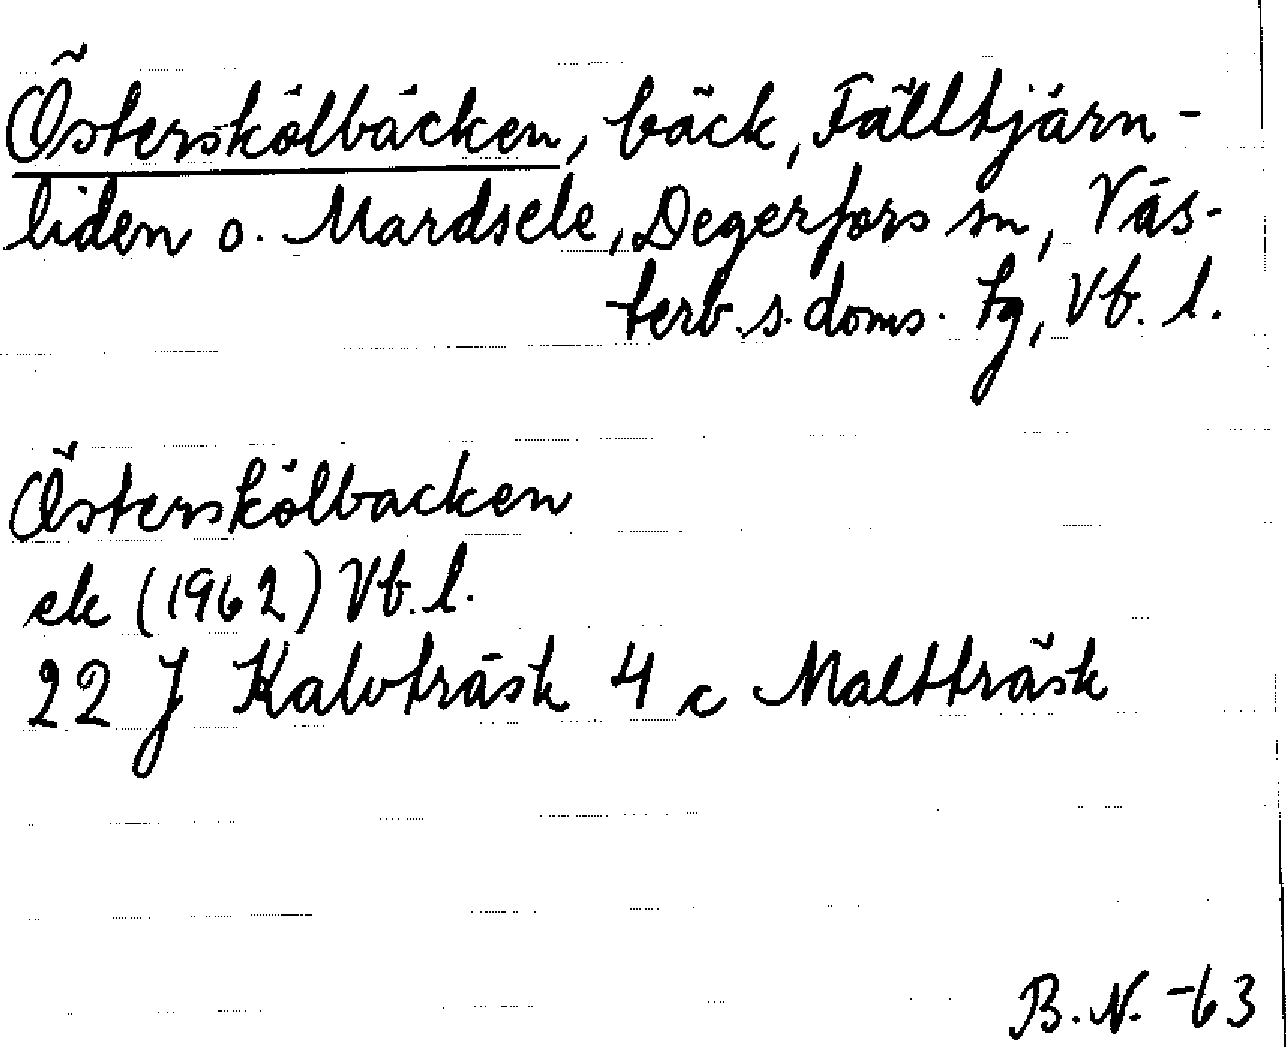 Österskölbäcken, bäck, Fälltjärn-
liden o. Mardsele, Degerfors sn, Väs-
terb. s. doms. tg, Vb. l.
Österskölbacken
ek (1962) Vb. l.
22 J Kalvträsk 4 c Maltträsk
B. N. -63